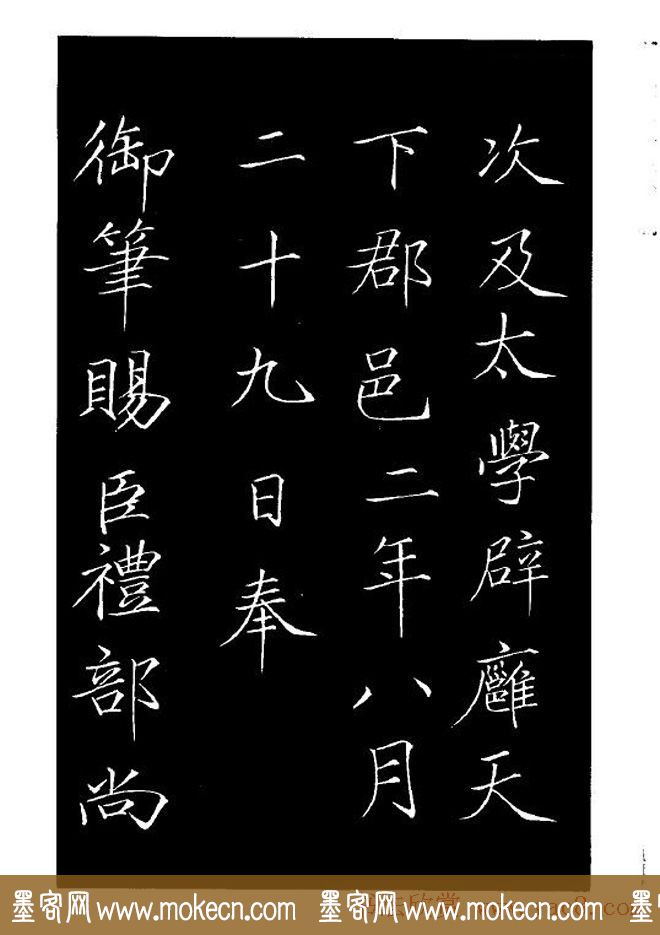 次及太學辟廱天
下郡邑二年八月
二十九日奉
御筆賜臣禮部尚
墨客网 www.mokecn.com 墨客网 www.mokecn.com